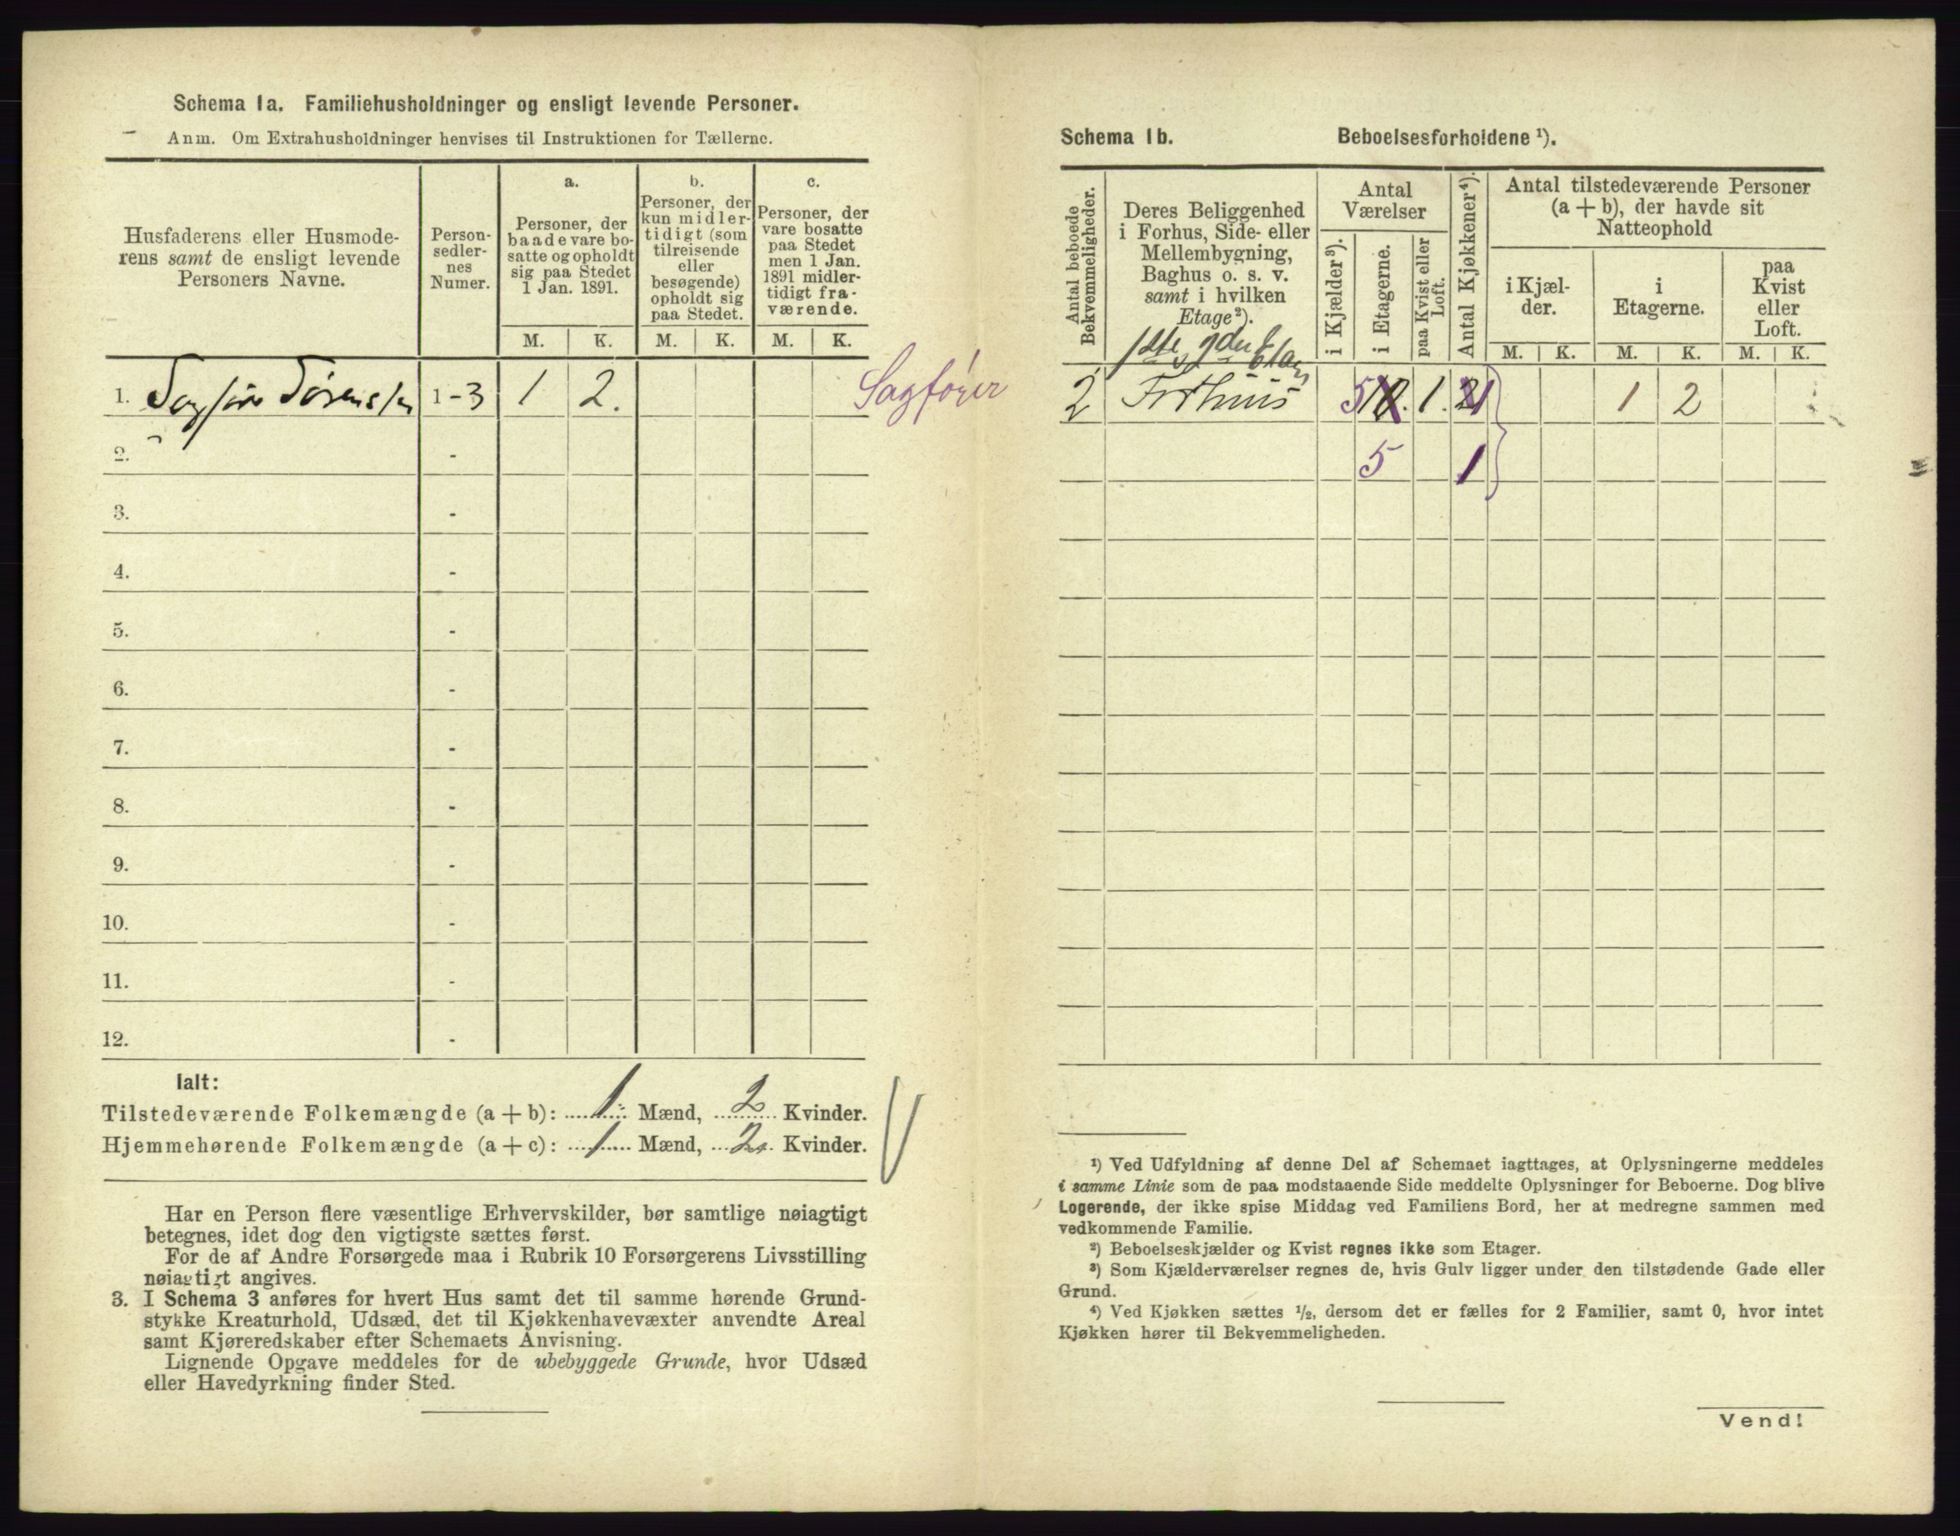 Schema 1a. Familiehusholdninger og ensligt levende Personer.
Anm. Om Extrahusholdninger henvises til Instruktionen for Tællerne.
Husfaderens eller Husmode-
rens samt de ensligt levende
Personers Navne.
Person-
sedler-
nes
Numer.
a.
Personer, der
baade vare bo-
satte og opholdt
sig paa Stedet
1 Jan. 1891.
b.
Personer, der
kun midler-
tidigt (som
tilreisende
eller
besøgende)
opholdt sig
paa Stedet.
c.
Personer, der
vare bosatte
paa Stedet
men 1 Jan.
1891 midler-
tidigt fra-
værende.
M. K. M. K. M. K.
1. Sagfører Sörensen 1-3 1 2. Sagfører
2. -
3. -
4. -
5. -
6. -
7. -
8. -
9. -
10. -
11. -
12. -
Ialt:
Tilstedeværende Folkemængde (a + b): 1 Mænd, 2 Kvinder.
Hjemmehørende Folkemængde (a + c): 1 Mænd, 2 Kvinder.
Har en Person flere væsentlige Erhvervskilder, bør samtlige nøiagtigt
betegnes, idet dog den vigtigste sættes først.
For de af Andre Forsørgede maa i Rubrik 10 Forsørgerens Livsstilling
nøiagtigt angives.
3. I Schema 3 anføres for hvert Hus samt det til samme hørende Grund-
stykke Kreaturhold, Udsæd, det til Kjøkkenhavevæxter anvendte Areal
samt Kjøreredskaber efter Schemaets Anvisning.
Lignende Opgave meddeles for de ubebyggede Grunde, hvor Udsæd
eller Havedyrkning finder Sted.
Schema 1b. Beboelsesforholdene ¹).
Antal beboede
Bekvemmeligheder.
Deres Beliggenhed
i Forhus, Side- eller
Mellembygning,
Baghus o. s. v.
samt i hvilken
Etage²).
Antal
Værelser
i Kjælder³).
i Etagerne.
paa Kvist eller
Loft.
Antal Kjøkkener⁴).
Antal tilstedeværende Personer
(a + b), der havde sit
Natteophold
i Kjæl-
der.
i
Etagerne.
paa
Kvist
eller
Loft.
M. K. M. K. M. K.
2 Forhuus 5 10. 1. 2 1 1 2
5 1
¹) Ved Udfyldning af denne Del af Schemaet iagttages, at Oplysningerne meddeles
i samme Linie som de paa modstaaende Side meddelte Oplysninger for Beboerne. Dog blive
Logerende, der ikke spise Middag ved Familiens Bord, her at medregne sammen med
vedkommende Familie.
²) Beboelseskjælder og Kvist regnes ikke som Etager.
³) Som Kjælderværelser regnes de, hvis Gulv ligger under den tilstødende Gade eller
Grund.
⁴) Ved Kjøkken sættes ½, dersom det er fælles for 2 Familier, samt 0, hvor intet
Kjøkken hører til Bekvemmeligheden.
Vend!